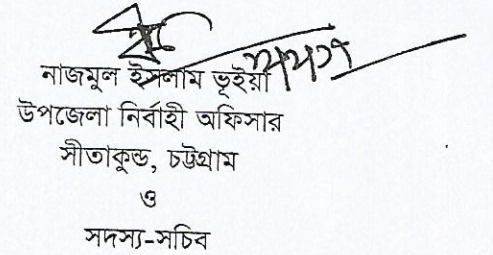 নাজমুল ইসলাম ভূইয়া
উপজেলা নির্বাহী অফিসার
সীতাকুন্ড, চট্টগ্রাম
ও
সদস্য-সচিব